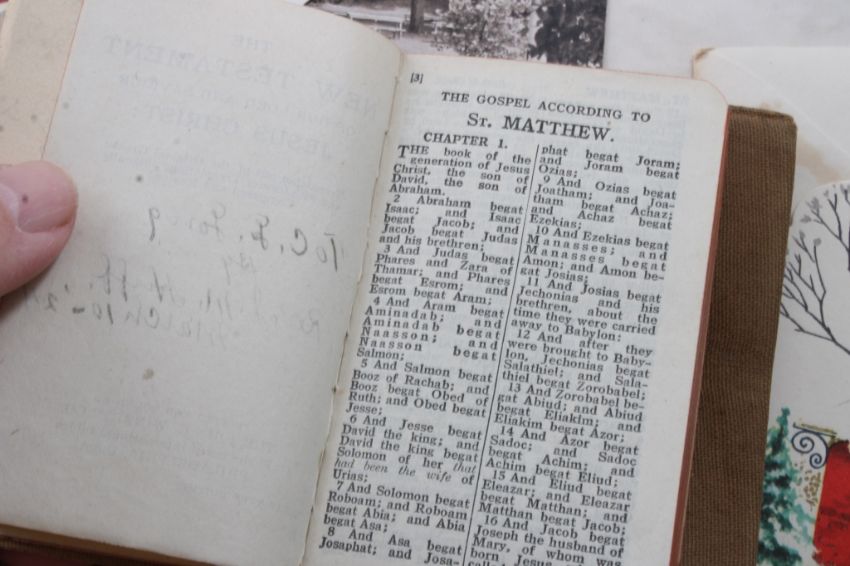 THE
NEW TESTAMENT
JESUS CHRIST
To C. E. Long
By
March 10-24
[3]
THE GOSPEL ACCORDING TO
ST. MATTHEW.
CHAPTER 1.
THE book of the
generation of Jesus
Christ, the son of
David, the son of
Abraham.
2 Abraham begat
Isaac; and Isaac
begat Jacob; and
Jacob begat Judas
and his brethren;
3 And Judas begat
Phares and Zara of
Thamar; and Phares
begat Esrom; and
Esrom begat Aram;
4 And Aram begat
Aminadab; and
Aminadab begat
Naasson; and
Naasson begat
Salmon;
5 And Salmon begat
Booz of Rachab; and
Booz begat Obed of
Ruth; and Obed begat
Jesse;
6 And Jesse begat
David the king; and
David the king begat
Solomon of her that
had been the wife of
Urias;
7 And Solomon begat
Roboam; and Roboam
begat Abia; and Abia
begat Asa;
8 And Asa begat
Josaphat; and Josa-
phat begat Joram;
and Joram begat
Ozias;
9 And Ozias begat
Joatham; and Joa-
tham begat Achaz;
and Achaz begat
Ezekias;
10 And Ezekias begat
Manasses; and
Manasses begat
Amon; and Amon be-
gat Josias;
11 And Josias begat
Jechonias and his
brethren, about the
time they were carried
away to Babylon:
12 And after they
were brought to Baby-
lon, Jechonias begat
Salathiel; and Sala-
thiel begat Zorobabel;
13 And Zorobabel be-
gat Abiud; and Abiud
begat Eliakim; and
Eliakim begat Azor;
14 And Azor begat
Sadoc; and Sadoc
begat Achim; and
Achim begat Eliud;
15 And Eliud begat
Eleazar; and Eleazar
begat Matthan; and
Matthan begat Jacob;
16 And Jacob begat
Joseph the husband of
Mary, of whom was
born Jesus,